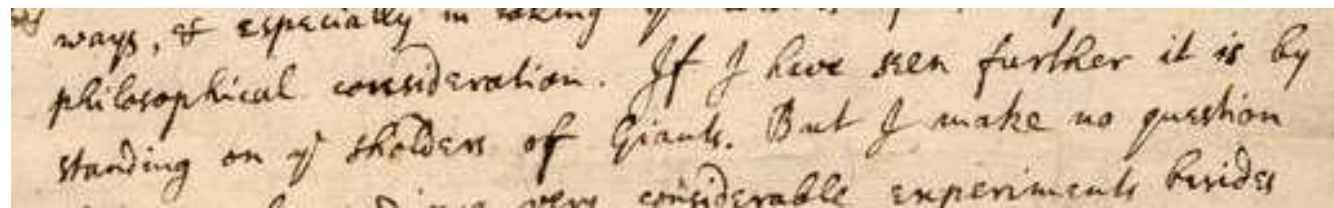 ways, & especially in taking ye
philosophical consideration. If I have seen further it is by
standing on ye sholders of Giants. But I make no question
very considerable experiments besides